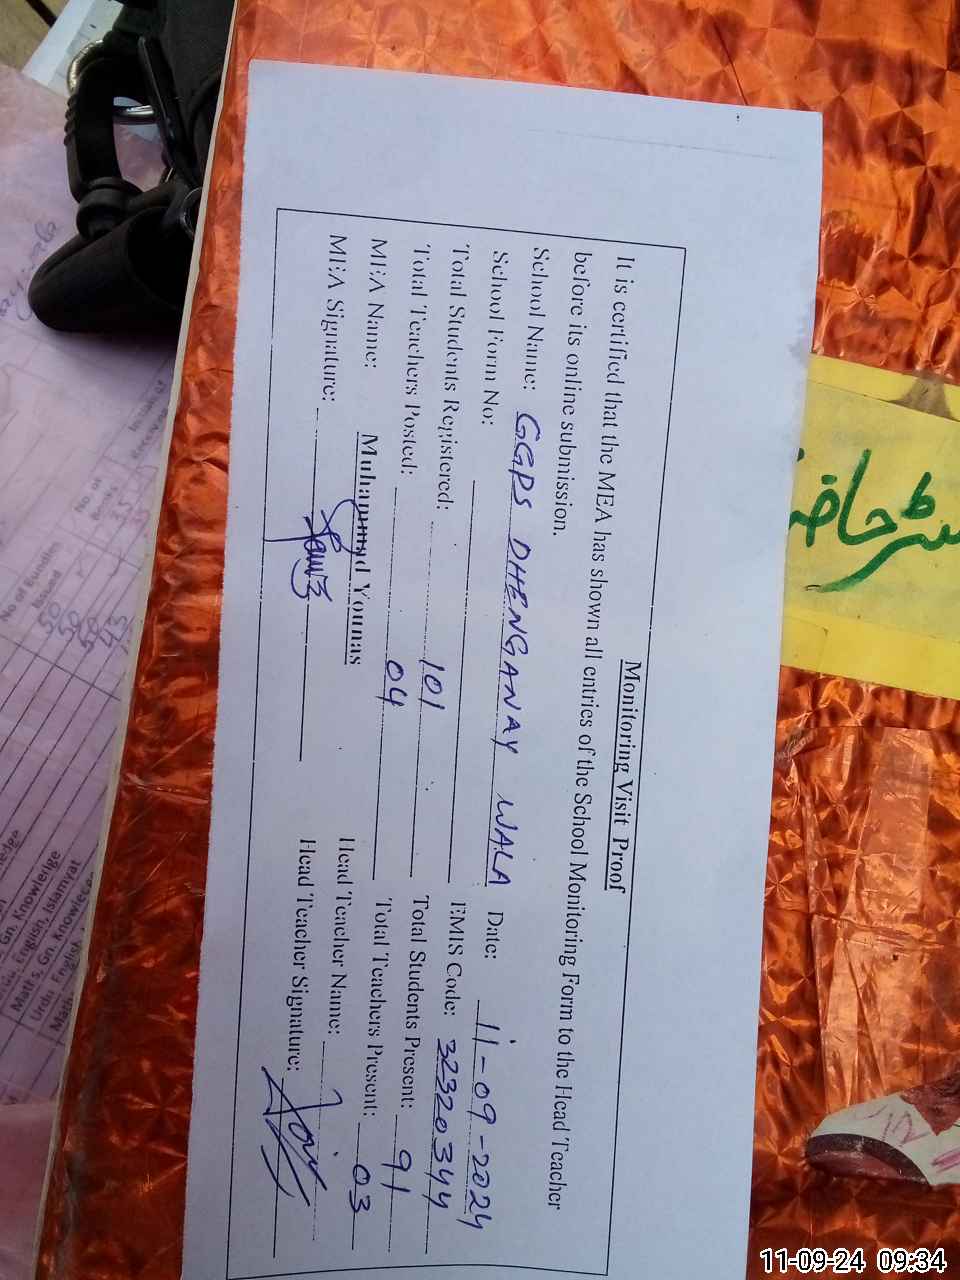 Monitoring Visit Proof
It is certified that the MEA has shown all entries of the School Monitoring Form to the Head Teacher
before its online submission.
School Name: GGPS DHENGANAY WALA Date: 11-09-2024
School Form No: EMIS Code: 32320344
Total Students Registered: 101 Total Students Present: 91
Total Teachers Posted: 04 Total Teachers Present: 03
MEA Name: Muhammad Younas Head Teacher Name:
MEA Signature: Head Teacher Signature:
No of Bundles
Issued
50
50
50
45
Gn. Knowledge
English, Islamyat
Math.s, Gn. Knowledge
Urdu English
Math
حاضر
11-09-24 09:34